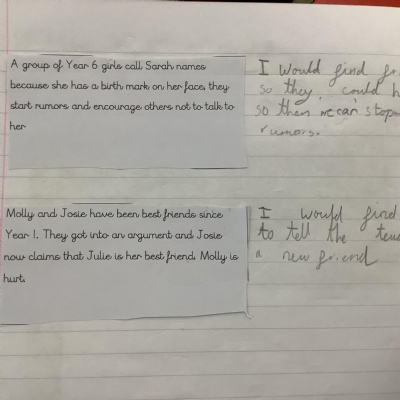 A group of Year 6 girls call Sarah names
because she has a birth mark on her face, they
start rumors and encourage others not to talk to
her
I would find
so they could
so then we can stop
rumors.
Molly and Josie have been best friends since
Year 1. They got into an argument and Josie
now claims that Julie is her best friend. Molly is
hurt.
I would find
to tell the
a new friend